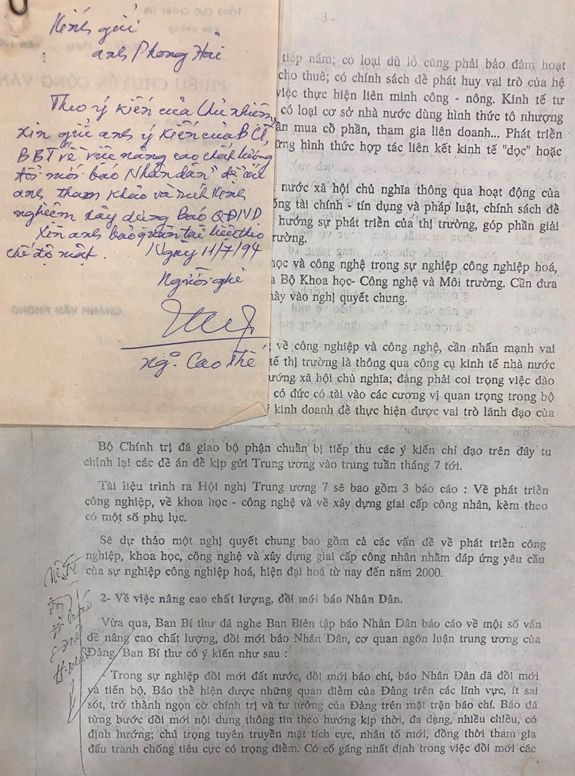 TỔNG CỤC CHÍNH TRỊ
Kính gửi
anh Phong Hải
PHIẾU CHUYỂN CÔNG VĂN
Theo ý kiến của Chủ nhiệm,
xin gửi anh ý kiến của BCT,
BBT về việc nâng cao chất lượng
đổi mới báo Nhân dân" để các
anh tham khảo và rút kinh
nghiệm xây dựng báo QĐND.
Xin anh bảo quản tài liệu theo
chế độ mật. Ngày 11/7/94
Người ghi
CHÁNH VĂN PHÒNG
ng. Cao Thế
tiếp nắm; có loại dù lỗ cũng phải bảo đảm hoạt
cho thuê; có chính sách để phát huy vai trò của hệ
việc thực hiện liên minh công - nông. Kinh tế tư
có loại cơ sở nhà nước dùng hình thức tô nhượng
mua cổ phần, tham gia liên doanh... Phát triển
hình thức hợp tác liên kết kinh tế "dọc" hoặc
nước xã hội chủ nghĩa thông qua hoạt động của
tài chính - tín dụng và pháp luật, chính sách để
hướng sự phát triển của thị trường, góp phần giải
trường.
học và công nghệ trong sự nghiệp công nghiệp hoá,
Bộ Khoa học- Công nghệ và Môi trường. Cần đưa
này vào nghị quyết chung.
về công nghiệp và công nghệ, cần nhấn mạnh vai
tế thị trường là thông qua công cụ kinh tế nhà nước
xã hội chủ nghĩa; đảng phải coi trọng việc đào
có đức có tài vào các cương vị quan trọng trong bộ
kinh doanh để thực hiện được vai trò lãnh đạo của
Bộ Chính trị đã giao bộ phận chuẩn bị tiếp thu các ý kiến chỉ đạo trên đây tu
chỉnh lại các đề án để kịp gửi Trung ương vào trung tuần tháng 7 tới.
Tài liệu trình ra Hội nghị Trung ương 7 sẽ bao gồm 3 báo cáo : Về phát triển
công nghiệp, về khoa học - công nghệ và về xây dựng giai cấp công nhân, kèm theo
có một số phụ lục.
Sẽ dự thảo một nghị quyết chung bao gồm cả các vấn đề về phát triển công
nghiệp, khoa học, công nghệ và xây dựng giai cấp công nhân nhằm đáp ứng yêu cầu
của sự nghiệp công nghiệp hoá, hiện đại hoá từ nay đến năm 2000.
2- Về việc nâng cao chất lượng, đổi mới báo Nhân Dân.
Vừa qua, Ban Bí thư đã nghe Ban Biên tập báo Nhân Dân báo cáo về một số vấn
đề nâng cao chất lượng, đổi mới báo Nhân Dân, cơ quan ngôn luận trung ương của
Đảng. Ban Bí thư có ý kiến như sau :
Trong sự nghiệp đổi mới đất nước, đổi mới báo chí, báo Nhân Dân đã đổi mới
và tiến bộ, Báo thể hiện được những quan điểm của Đảng trên các lĩnh vực, ít sai
sót, trở thành ngọn cờ chính trị và tư tưởng của Đảng trên mặt trận báo chí. Báo đã
từng bước đổi mới nội dung thông tin theo hướng kịp thời, đa dạng, nhiều chiều, có
định hướng; chú trọng tuyên truyền mặt tích cực, nhân tố mới, đồng thời tham gia
đấu tranh chống tiêu cực có trọng điểm. Có cố gắng nhất định trong việc đổi mới các